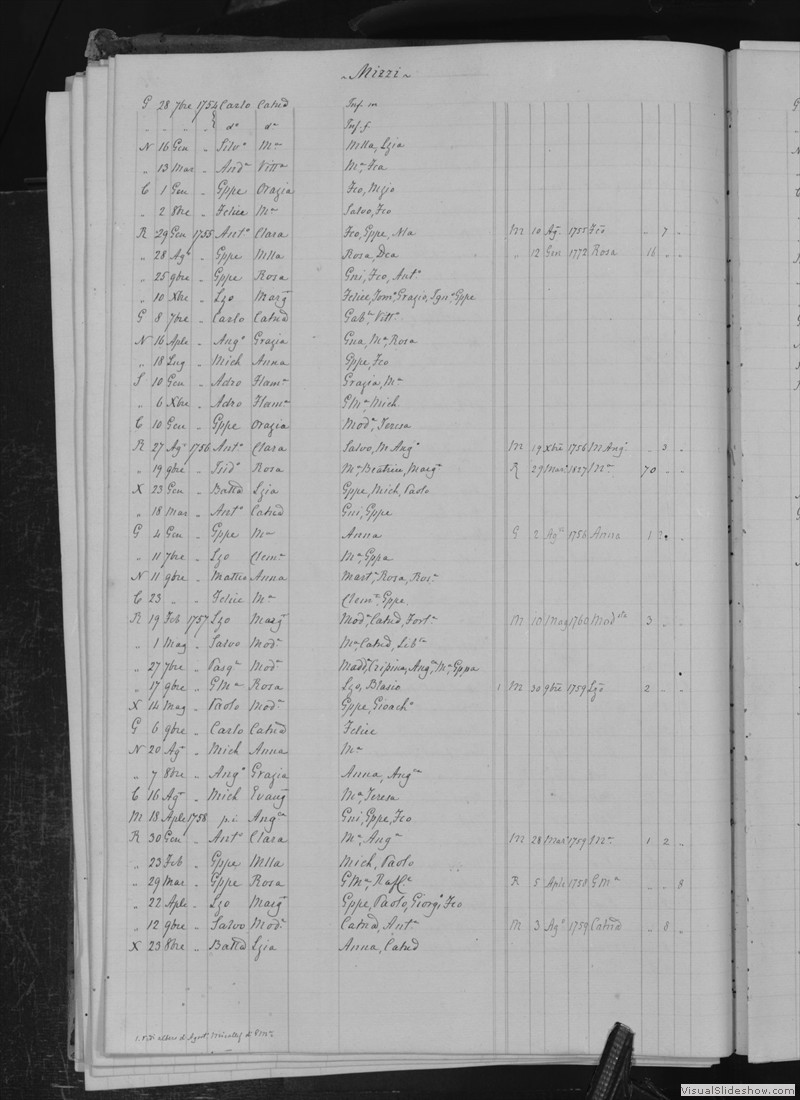 ~ Mizzi ~
G 28 7bre 1754 Carlo Catnd Inf m
" " " " do da Inf. f
N 16 Gen " Silvo Ma Mlla, Lzia
" 13 Mar " Anda Vitta Ma, Fca
C 1 Gen " Gppe Orazia Fco, Nzio
" 2 8bre " Felice Ma Salvo, Fco
R 29 Gen 1755 Anto Clara Fco, Gppe, Nla M 10 Ago 1755 Fco " 7 "
" 28 Ago " Gppe Mlla Rosa, Dca " 12 Gen 1772 Rosa 16 " "
" 25 9bre " Gppe Rosa Gni, Fco, Anto
" 10 Xbre " Lzo Marg Felice, Tomo, Grazio, Igno, Gppe
G 8 7bre " Carlo Catnd Gabla, Vitta
N 16 Aple " Ango Grazia Gna, Ma, Rosa
" 18 Lug " Mich Anna Gppe, Fco
S 10 Gen " Adro Flama Grazia, Ma
" 6 Xbre " Adro Flama GMa, Mich
C 10 Gen " Gppe Orazia Moda, Teresa
R 27 Ago 1756 Anto Clara Salvo, M Anga M 19 Xbre 1756 M Anga " 3 "
" 19 9bre " Fido Rosa Ma, Beatrice, Marga R 29 Mar 1827 Ma 70 " "
X 23 Gen " Batta Lzia Gppe, Mich, Paolo
" 18 Mar " Anto Catnd Gni, Gppe
G 4 Gen " Gppe Ma Anna G 2 Ago 1756 Anna
" 11 7bre " Lzo Clema Ma, Gppa
N 11 9bre " Matteo Anna Marta, Rosa, Rosa
C 23 " " Felice Ma Clemte, Gppe
R 19 Feb 1757 Lzo Marg Moda, Catnd, Forta M 10 Mag 1760 Modsta 3 " "
" 1 Mag " Salvo Moda Ma, Catnd, Liba
" 27 7bre " Pasqe Moda Moda, Cripina, Anga, Ma, Gppa
" 17 9bre " GMa Rosa Lzo, Blasio 1 M 30 9bre 1759 Lzo 2 " "
X 14 Mag " Paolo Moda Gppe, Gioacho
G 6 9bre " Carlo Catnd Felice
N 20 Ago " Mich Anna Ma
" 7 8bre " Ango Grazia Anna, Anga
C 16 Ago " Mich Evang Ma, Teresa
M 18 Aple 1758 pi Angca Gni, Gppe, Fco
R 30 Gen " Anto Clara Ma, Anga M 28 Mar 1759 Ma 1 2 "
" 23 Feb " Gppe Mlla Mich, Paolo
" 29 Mar " Gppe Rosa GMa, Rafle R 5 Aple 1758 GMa " " 8
" 22 Aple " Lzo Marg Gppe, Paolo, Giorgo, Fco
" 12 9bre " Salvo Moda Catnd, Anta M 3 Ago 1759 Catnd " 8 "
X 23 8bre " Batta Lzia Anna, Catnd
VisualSlideshow.com